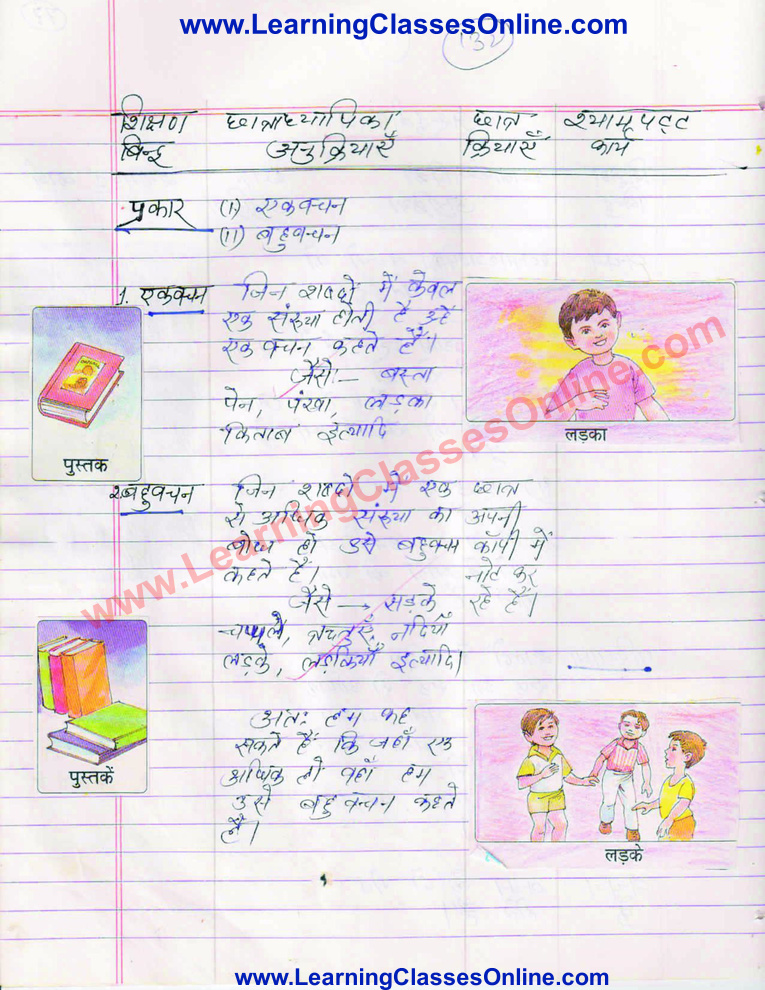 www.LearningClassesOnline.com
शिक्षण छात्राध्यापिका छात्र श्यामपट्ट
बिन्दु अनुक्रियाएँ क्रियाएँ कार्य
प्रकार (I) एकवचन
(II) बहुवचन
1. एकवचन जिन शब्दो में केवल
एक संख्या होती है उन्हें
एकवचन कहते हैं।
जैसे:— बस्ता
पेन, पंखा, लड़का
किताब इत्यादि
पुस्तक
लड़का
2. बहुवचन जिन शब्दो में एक छात्र
से अधिक संख्या का अपनी
बोध हो उसे बहुवचन कॉपी में
कहते हैं। नोट कर
जैसे → सड़के रहे हैं।
चप्पलें, नदियाँ
लड़के, लड़कियाँ इत्यादि।
पुस्तकें
अतः हम कह
सकते हैं कि जहाँ एक
अधिक हो वहाँ हम
उसे बहुवचन कहते
हैं।
लड़के
www.LearningClassesOnline.com
www.LearningClassesOnline.com